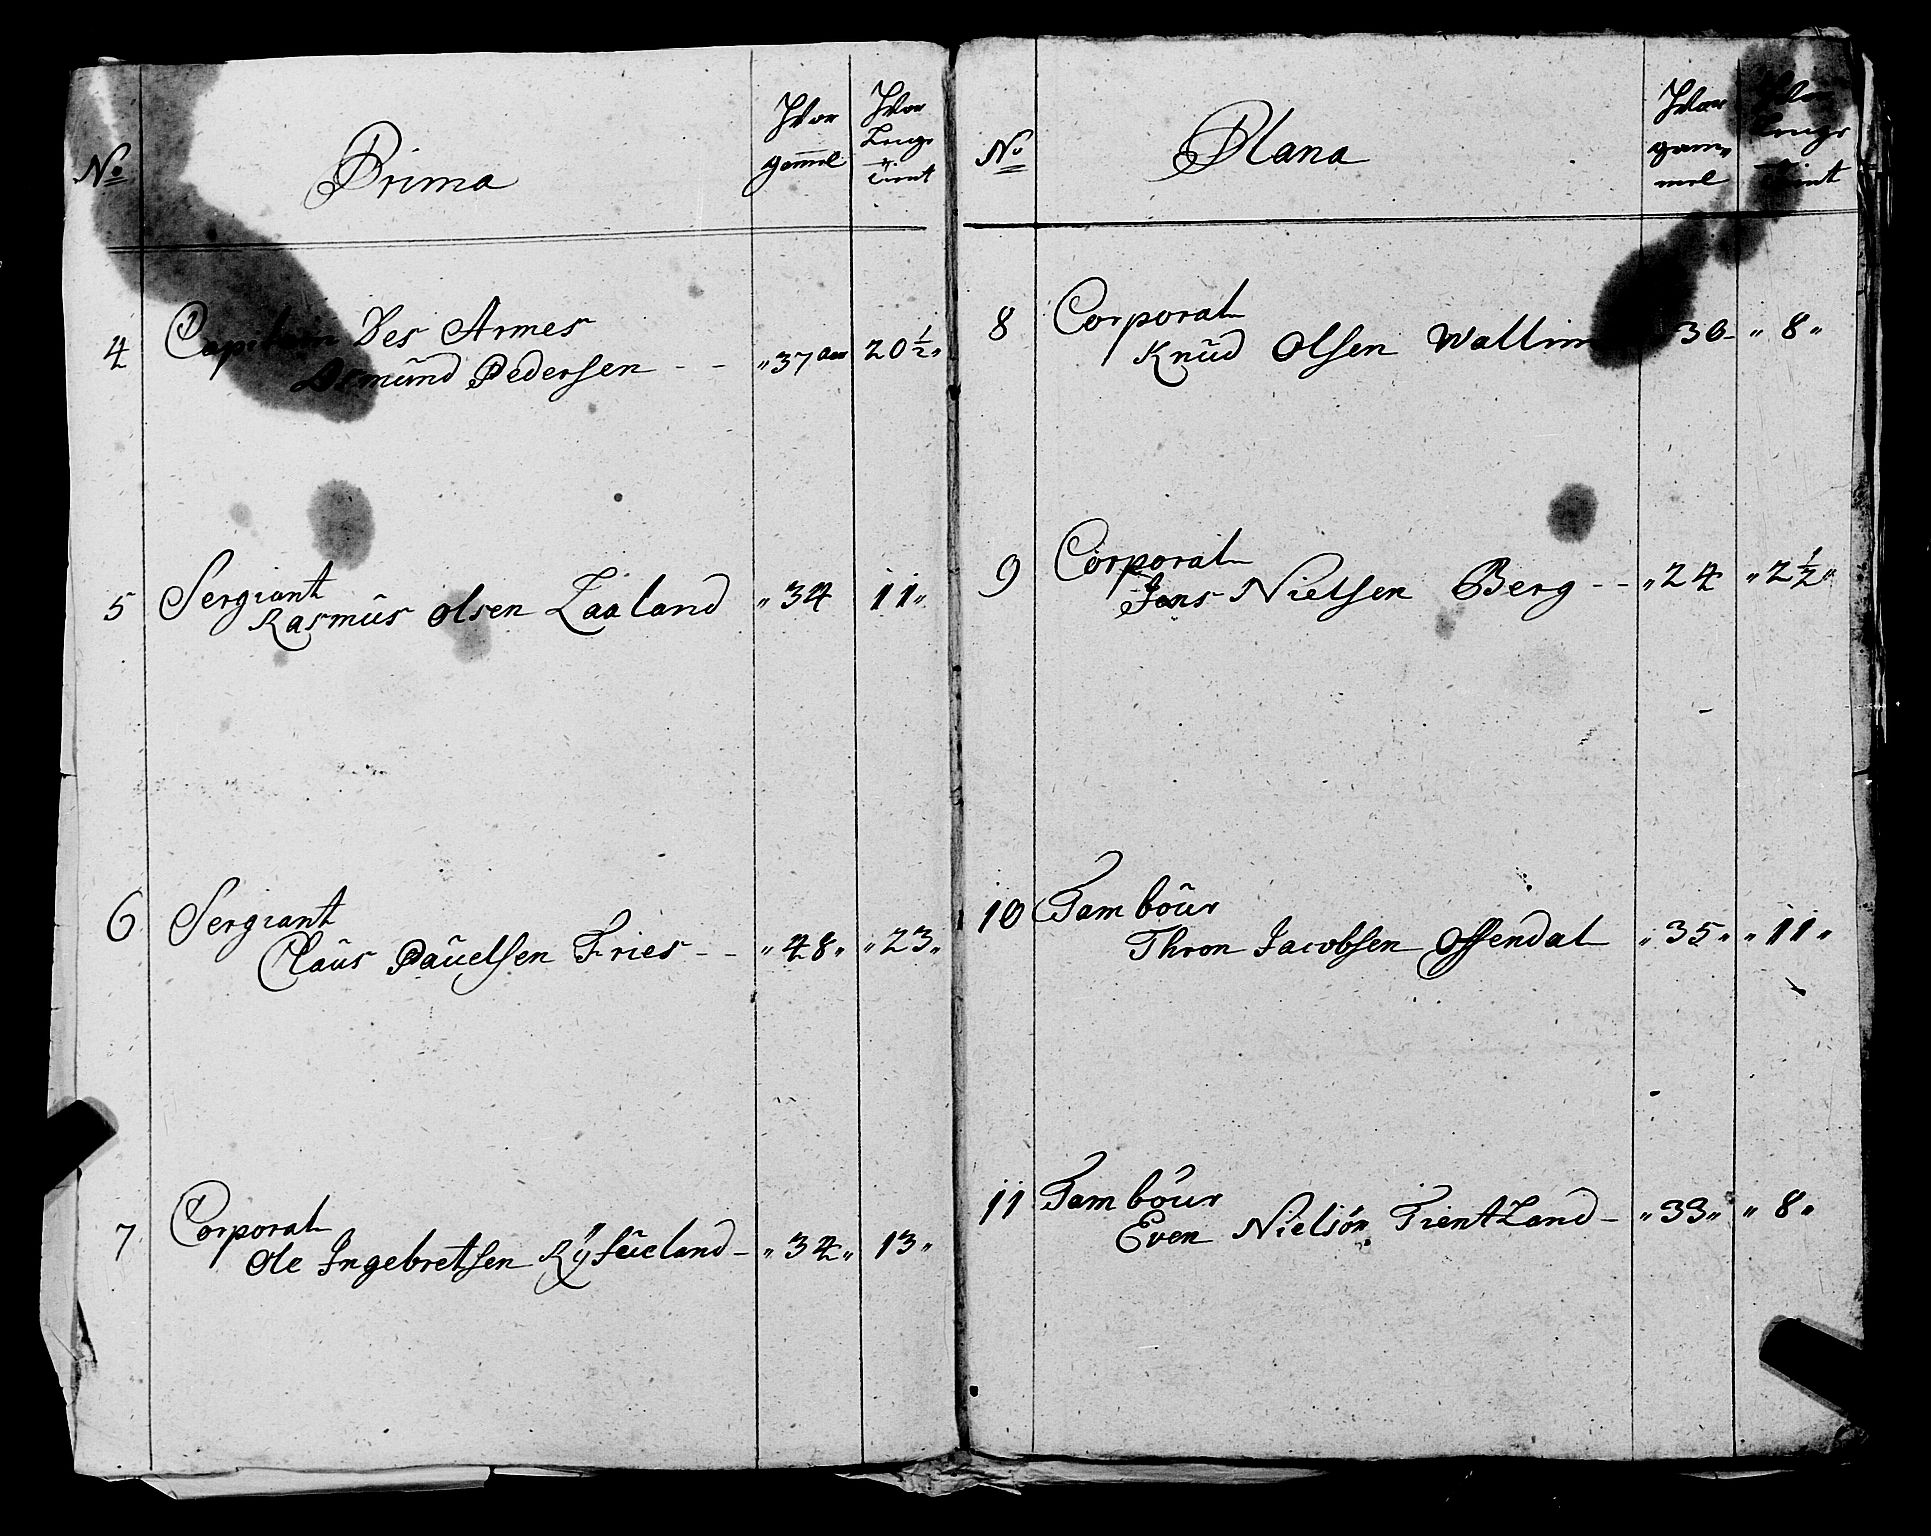 No
Prima
Hvor
gammel
Hvor
Lenge
tient
4 Capitain Des Armes
Asmund Pedersen - - " 37 aar 20 1/2 "
5 Sergiant
Rasmus Olsen Laaland " 34 11 "
6 Sergiant
Claus Pauelsen Fries - - " 48 " " 23 "
7 Corporal
Ole Ingebretsen Rysueland - " 34 " 13 "
No
Plana
Hvor
gam„
mel
Hvor
Lenge
tient
8 Corporal
Knud Olsen 30 - " 8 "
9 Corporal
Jens Nielsen Berg - - " 24 " 2 1/2 "
10 Tambour
Thron Jacobsen Ossendal " 35 " " 11 "
11 Tambour
Even Nielsøn TientLand - " 33 " " 8 "